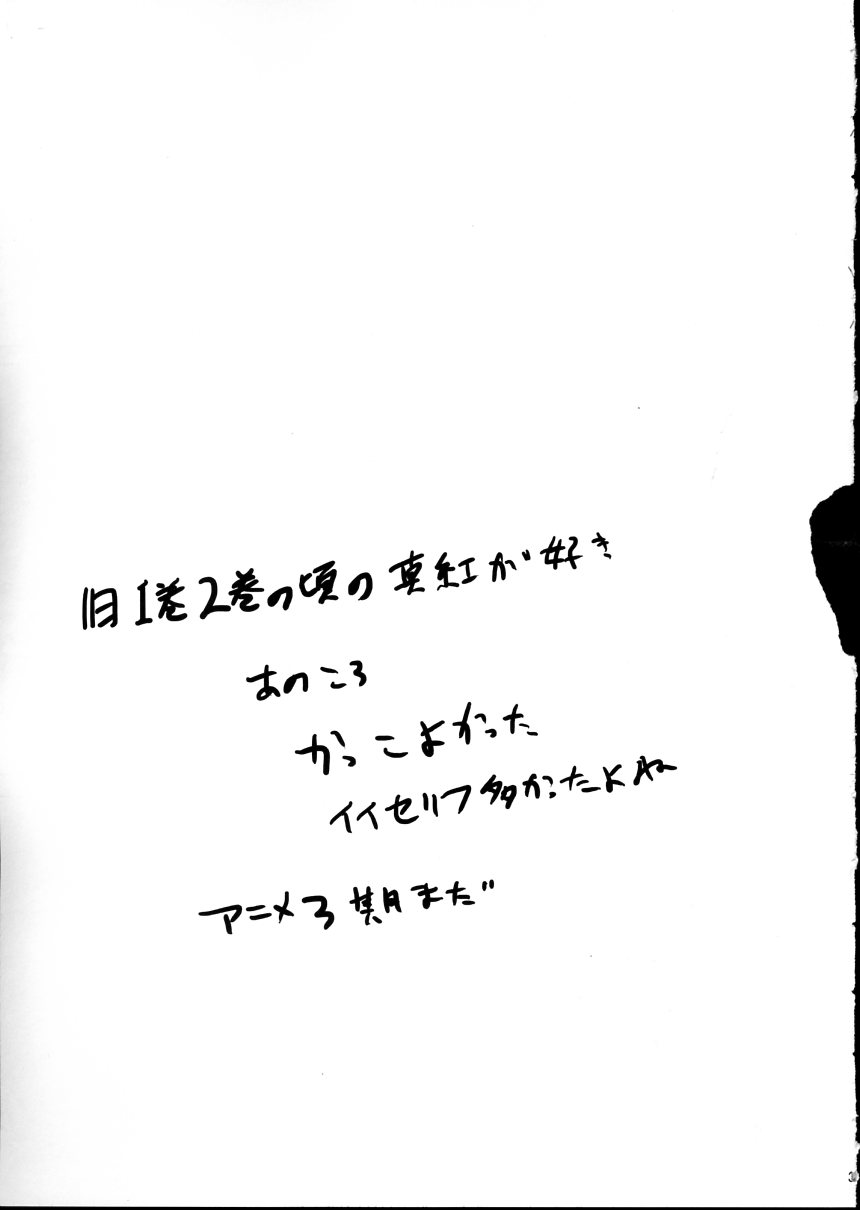 旧1巻2巻の頃の真紅が好き
あのころ
かっこよかった
イイセリフ多かったよね
アニメ3期まだ
3